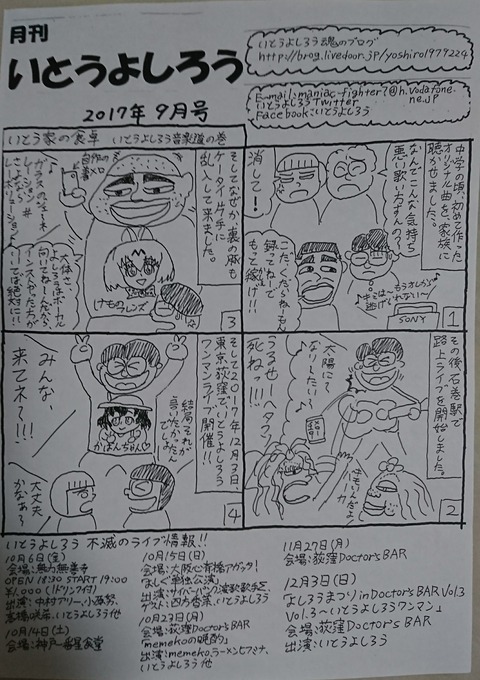 月刊
いとうよしろう
2017年 9月号
いとうよしろう魂のブログ
http://brog.livedoor.jp/yoshiro1979224
E-mail:maniac-fighter7@h.vodafone.
ne.jp
いとうよしろうTwitter
Facebook:いとうよしろう
いとう家の食卓 いとうよしろう音楽道の巻
中学の頃、初めて作った
オリジナル曲を、家族に
聴かせました。
なんでこんな気持ち
悪い歌い方すんの?
消して!
こだくだらねーもん
録ってねーで
もっと稼け!!
♪キミは〜もうオレから
逃げられない〜♪
SONY
1
その後石巻駅で
路上ライブを開始しました。
太陽にて
なりたい!♪
うるせータコ!
死ねっ!!!
キモいんだよ
バーカ
2
そしてなぜか、裏の豚も
ケータイ片手に
乱入して来ました。
けもの
フレンズ
3
そして2017年12月3日、
東京荻窪でいとうよしろう
ワンマンライブ開催!!
結局それが
言いたかったん
でしょ
かばんちゃん♡
みんな、
来てネ?!!!
大丈夫
かなぁ?
4
いとうよしろう 不滅のライブ情報!!
10月6日(金)
会場:無力無善寺
OPEN 18:30 START 19:00
¥1,000 (1ドリンク付)
出演:中村アリー、小西努、
高橋咲弟、いとうよしろう他
10月14日(土)
会場:神戸一番星食堂
10月15日(日)
会場:大阪心斎橋アゲッタ!
「よしぐ単独公演」
出演:サイバーパンク演歌歌手ぐ
ゲスト:四方香菜、いとうよしろう
10月23日(月)
会場:荻窪Doctor's BAR
「memekoの晩酌」
出演:memeko、ラーメンヒフミナ、
いとうよしろう 他
11月27日(月)
会場:荻窪Doctor's BAR
12月3日(日)
「よしろうまつり in Doctor's BAR Vol.3
Vol.3〜いとうよしろうワンマン」
会場:荻窪Doctor's BAR
出演:いとうよしろう